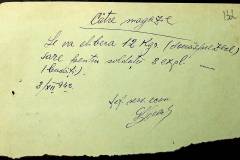 132
Către magazie
Se va elibera 12 Kgr. (douăsprezece)
sare pentru soldații 8 expl.
(bucăți).
3/XII 942.
Șef. serv. ecom